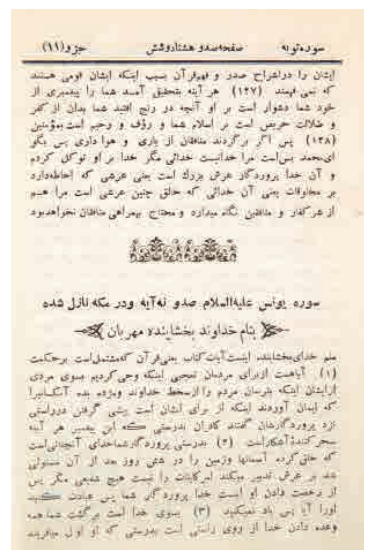 سوره توبه صفحه صد و هشتاد و شش جزو (۱۱)
ایشان را در انشراح صدر و فهم قرآن بسبب اینکه ایشان قومی هستند
که نمی فهمند (۱۲۷) هر آینه بتحقیق آمد شما را پیغمبری از
خود شما دشوار است بر او آنچه در رنج افتید شما بدان از کفر
و ضلالت حریص است بر اسلام شما و رؤف و رحیم است بمؤمنین
(۱۲۸) پس اگر برگردند منافقان از یاری و هواداری پس بگو
ای محمد بس است مرا خدا نیست خدائی مگر خدا بر او توکل کردم
و آن خدا پروردگار عرش بزرگ است یعنی عرشی که احاطه دارد
بر مخلوقات یعنی آن خدائی که خالق چنین عرشی است مرا هم
از شر کفار و منافقین نگاه میدارد و محتاج بهمراهی منافقان نخواهد بود
سوره یونس علیه السلام صد و نه آیه و در مکه نازل شده
بنام خداوند بخشاینده مهربان
منم خدای بخشاینده اینست آیات کتاب یعنی قرآن که مشتمل است بر حکمت
(۱) آیا هست از برای مردمان تعجبی اینکه وحی کردیم بسوی مردی
از ایشان اینکه بترسان مردم را از سخط خداوند و مژده بده آنکسانیرا
که ایمان آوردند اینکه از برای ایشان است پیشی گرفتن در راستی
نزد پروردگارشان گفتند کافران بدرستی که این پیغمبر هر آینه
سحر کننده آشکار است (۲) بدرستی پروردگار شما خدای آنچنانی است
که خلق کرده آسمانها و زمین را در شش روز بعد از آن مستولی
شد بر عرش تدبیر میکند امر کاینات را نیست هیچ شفیعی مگر پس
از رخصت دادن او اینست خدا پروردگار شما پس عبادت کنید
او را آیا پس یاد نمیکنید (۳) بسوی خدا است برگشت شما همه
وعده دادن خدا از روی راستی است بدرستی که او اول میآفریند